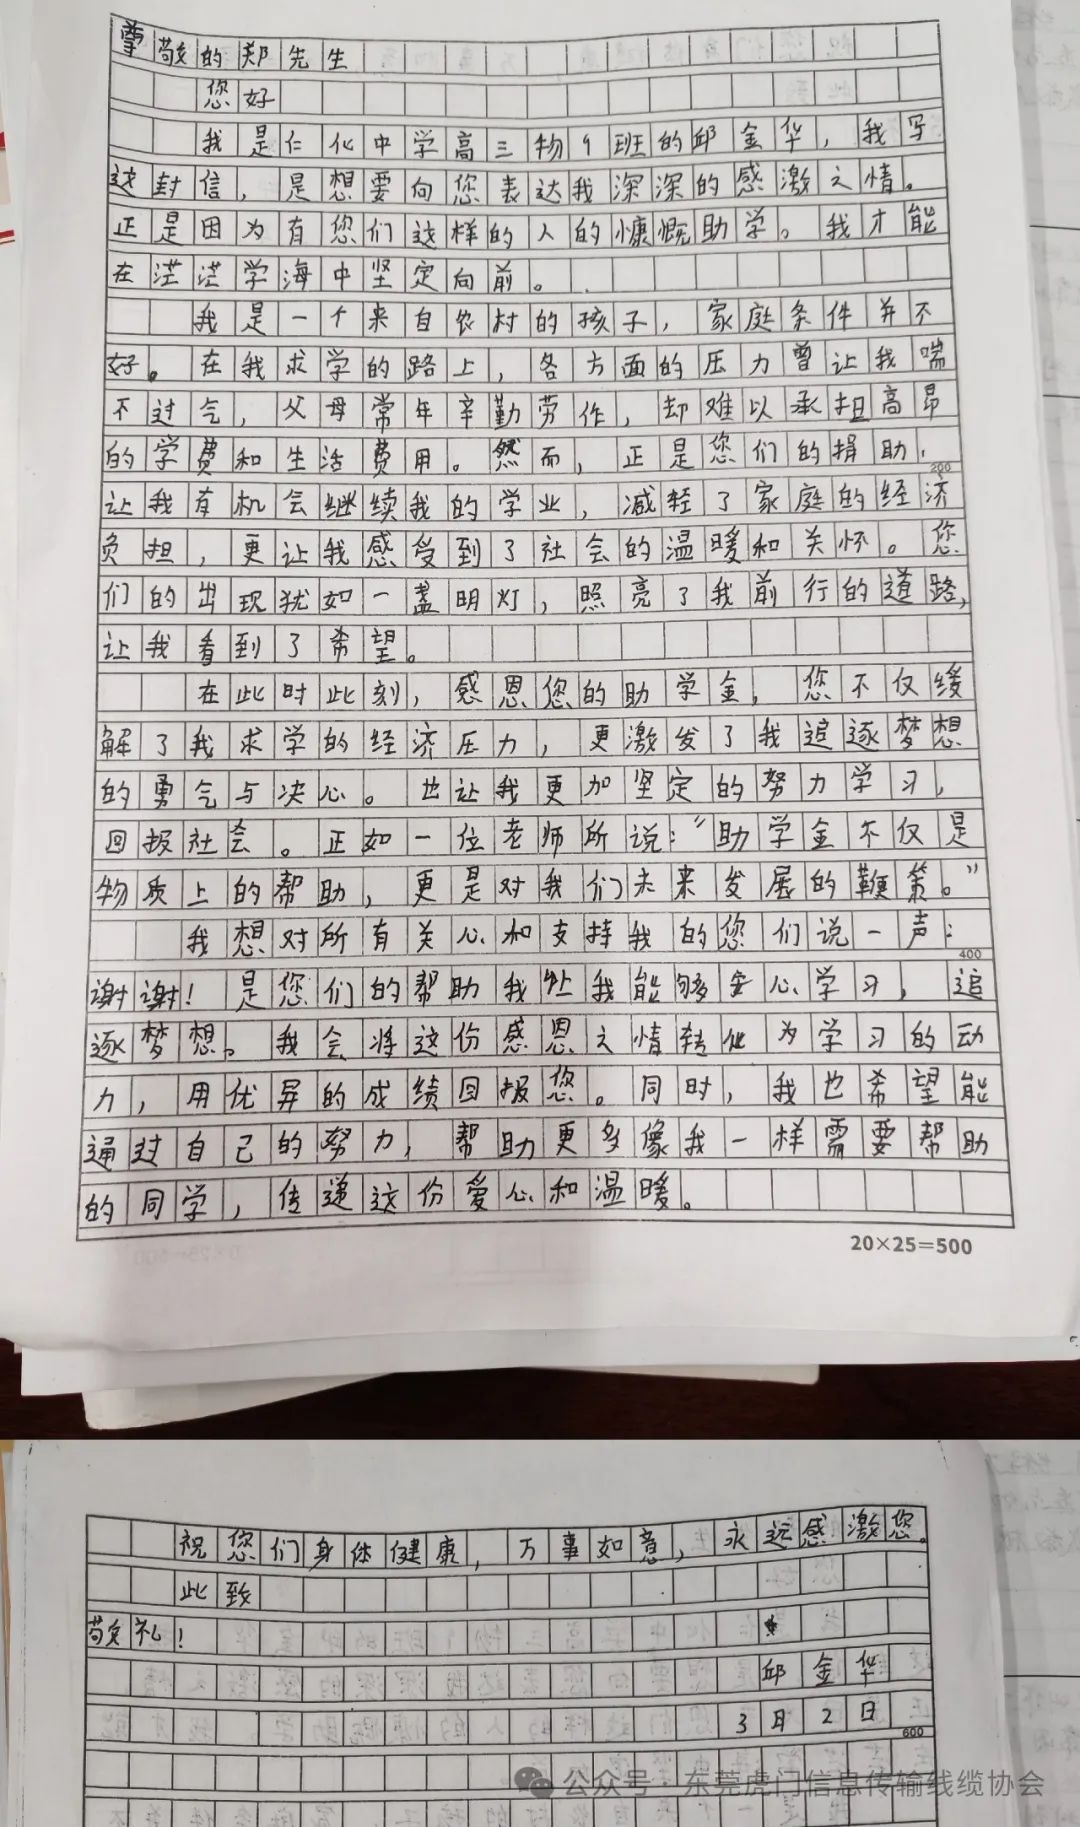 尊敬的郑先生
您好
我是仁化中学高三物9班的邱金华，我写
这封信，是想要向您表达我深深的感激之情。
正是因为有您们这样的人的慷慨助学。我才能
在茫茫学海中坚定向前。
我是一个来自农村的孩子，家庭条件并不
好。在我求学的路上，各方面的压力曾让我喘
不过气，父母常年辛勤劳作，却难以承担高昂
的学费和生活费用。然而，正是您们的捐助，
200
让我有机会继续我的学业，减轻了家庭的经济
负担，更让我感受到了社会的温暖和关怀。您
们的出现犹如一盏明灯，照亮了我前行的道路，
让我看到了希望。
在此时此刻，感恩您的助学金，您不仅缓
解了我求学的经济压力，更激发了我追逐梦想
的勇气与决心。也让我更加坚定的努力学习，
回报社会。正如一位老师所说："助学金不仅是
物质上的帮助，更是对我们未来发展的鞭策。"
我想对所有关心和支持我的您们说一声：
400
谢谢！是您们的帮助我让我能够安心学习，追
逐梦想。我会将这份感恩之情转化为学习的动
力，用优异的成绩回报您。同时，我也希望能
通过自己的努力，帮助更多像我一样需要帮助
的同学，传递这份爱心和温暖。
20×25=500
祝您们身体健康，万事如意，永远感激您。
此致
敬礼！
邱金华
3月2日
600
公众号·东莞虎门信息传输线缆协会